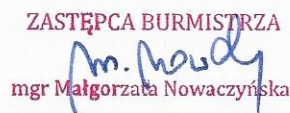 ZASTĘPCA BURMISTRZA
mgr Małgorzata Nowaczyńska